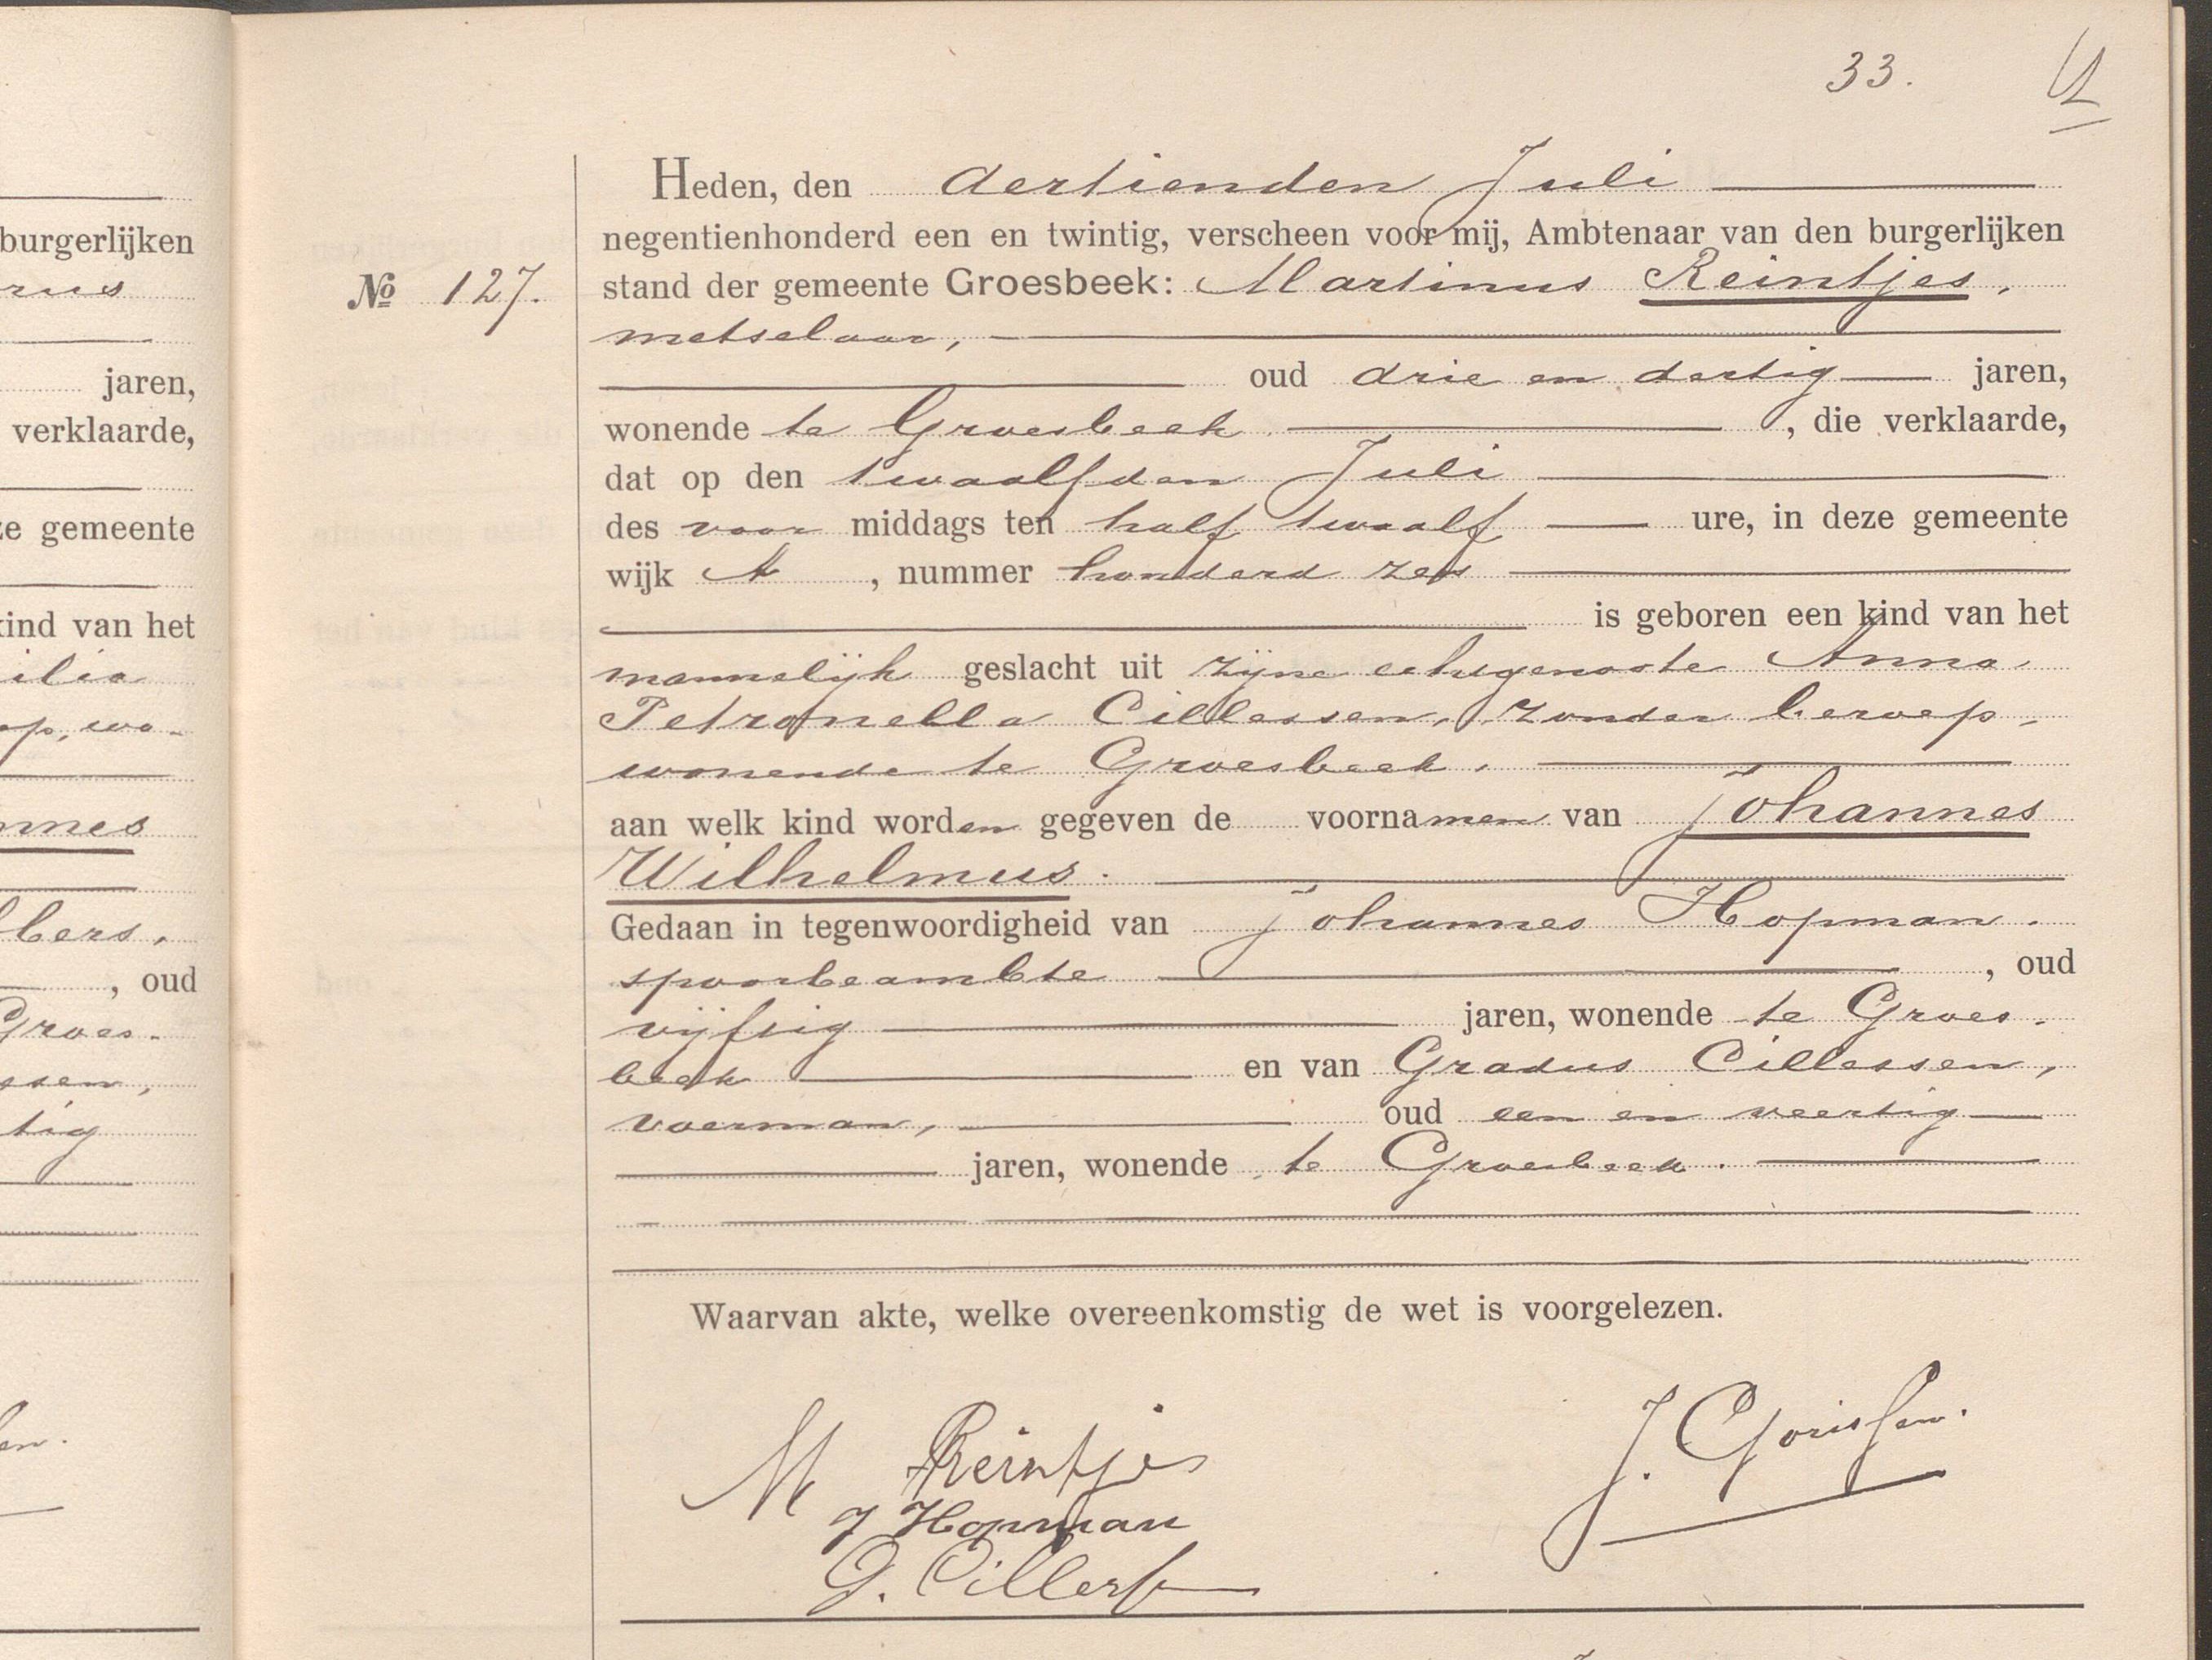 33.
burgerlijken
rus
jaren,
verklaarde,
ze gemeente
kind van het
ilia
op, wo-
nnes
bers,
, oud
Groes-
ssen,
tig
Heden, den dertienden Juli
negentienhonderd een en twintig, verscheen voor mij, Ambtenaar van den burgerlijken
No 127. stand der gemeente Groesbeek: Martinus Reintjes,
metselaar,
oud drie en dertig jaren,
wonende te Groesbeek, die verklaarde,
dat op den twaalfden Juli
des voor middags ten half twaalf ure, in deze gemeente
wijk A, nummer honderd zes
is geboren een kind van het
mannelijk geslacht uit zijne echtgenoote Anna
Petronella Cillessen, zonder beroep,
wonende te Groesbeek,
aan welk kind worden gegeven de voornamen van Johannes
Wilhelmus.
Gedaan in tegenwoordigheid van Johannes Hopman,
spoorbeambte, oud
vijftig jaren, wonende te Groes-
beek en van Gradus Cillessen,
voerman, oud een en veertig
jaren, wonende te Groesbeek.
Waarvan akte, welke overeenkomstig de wet is voorgelezen.
M Reintjes J. Gorissen.
J Hopman
G. Cillessen